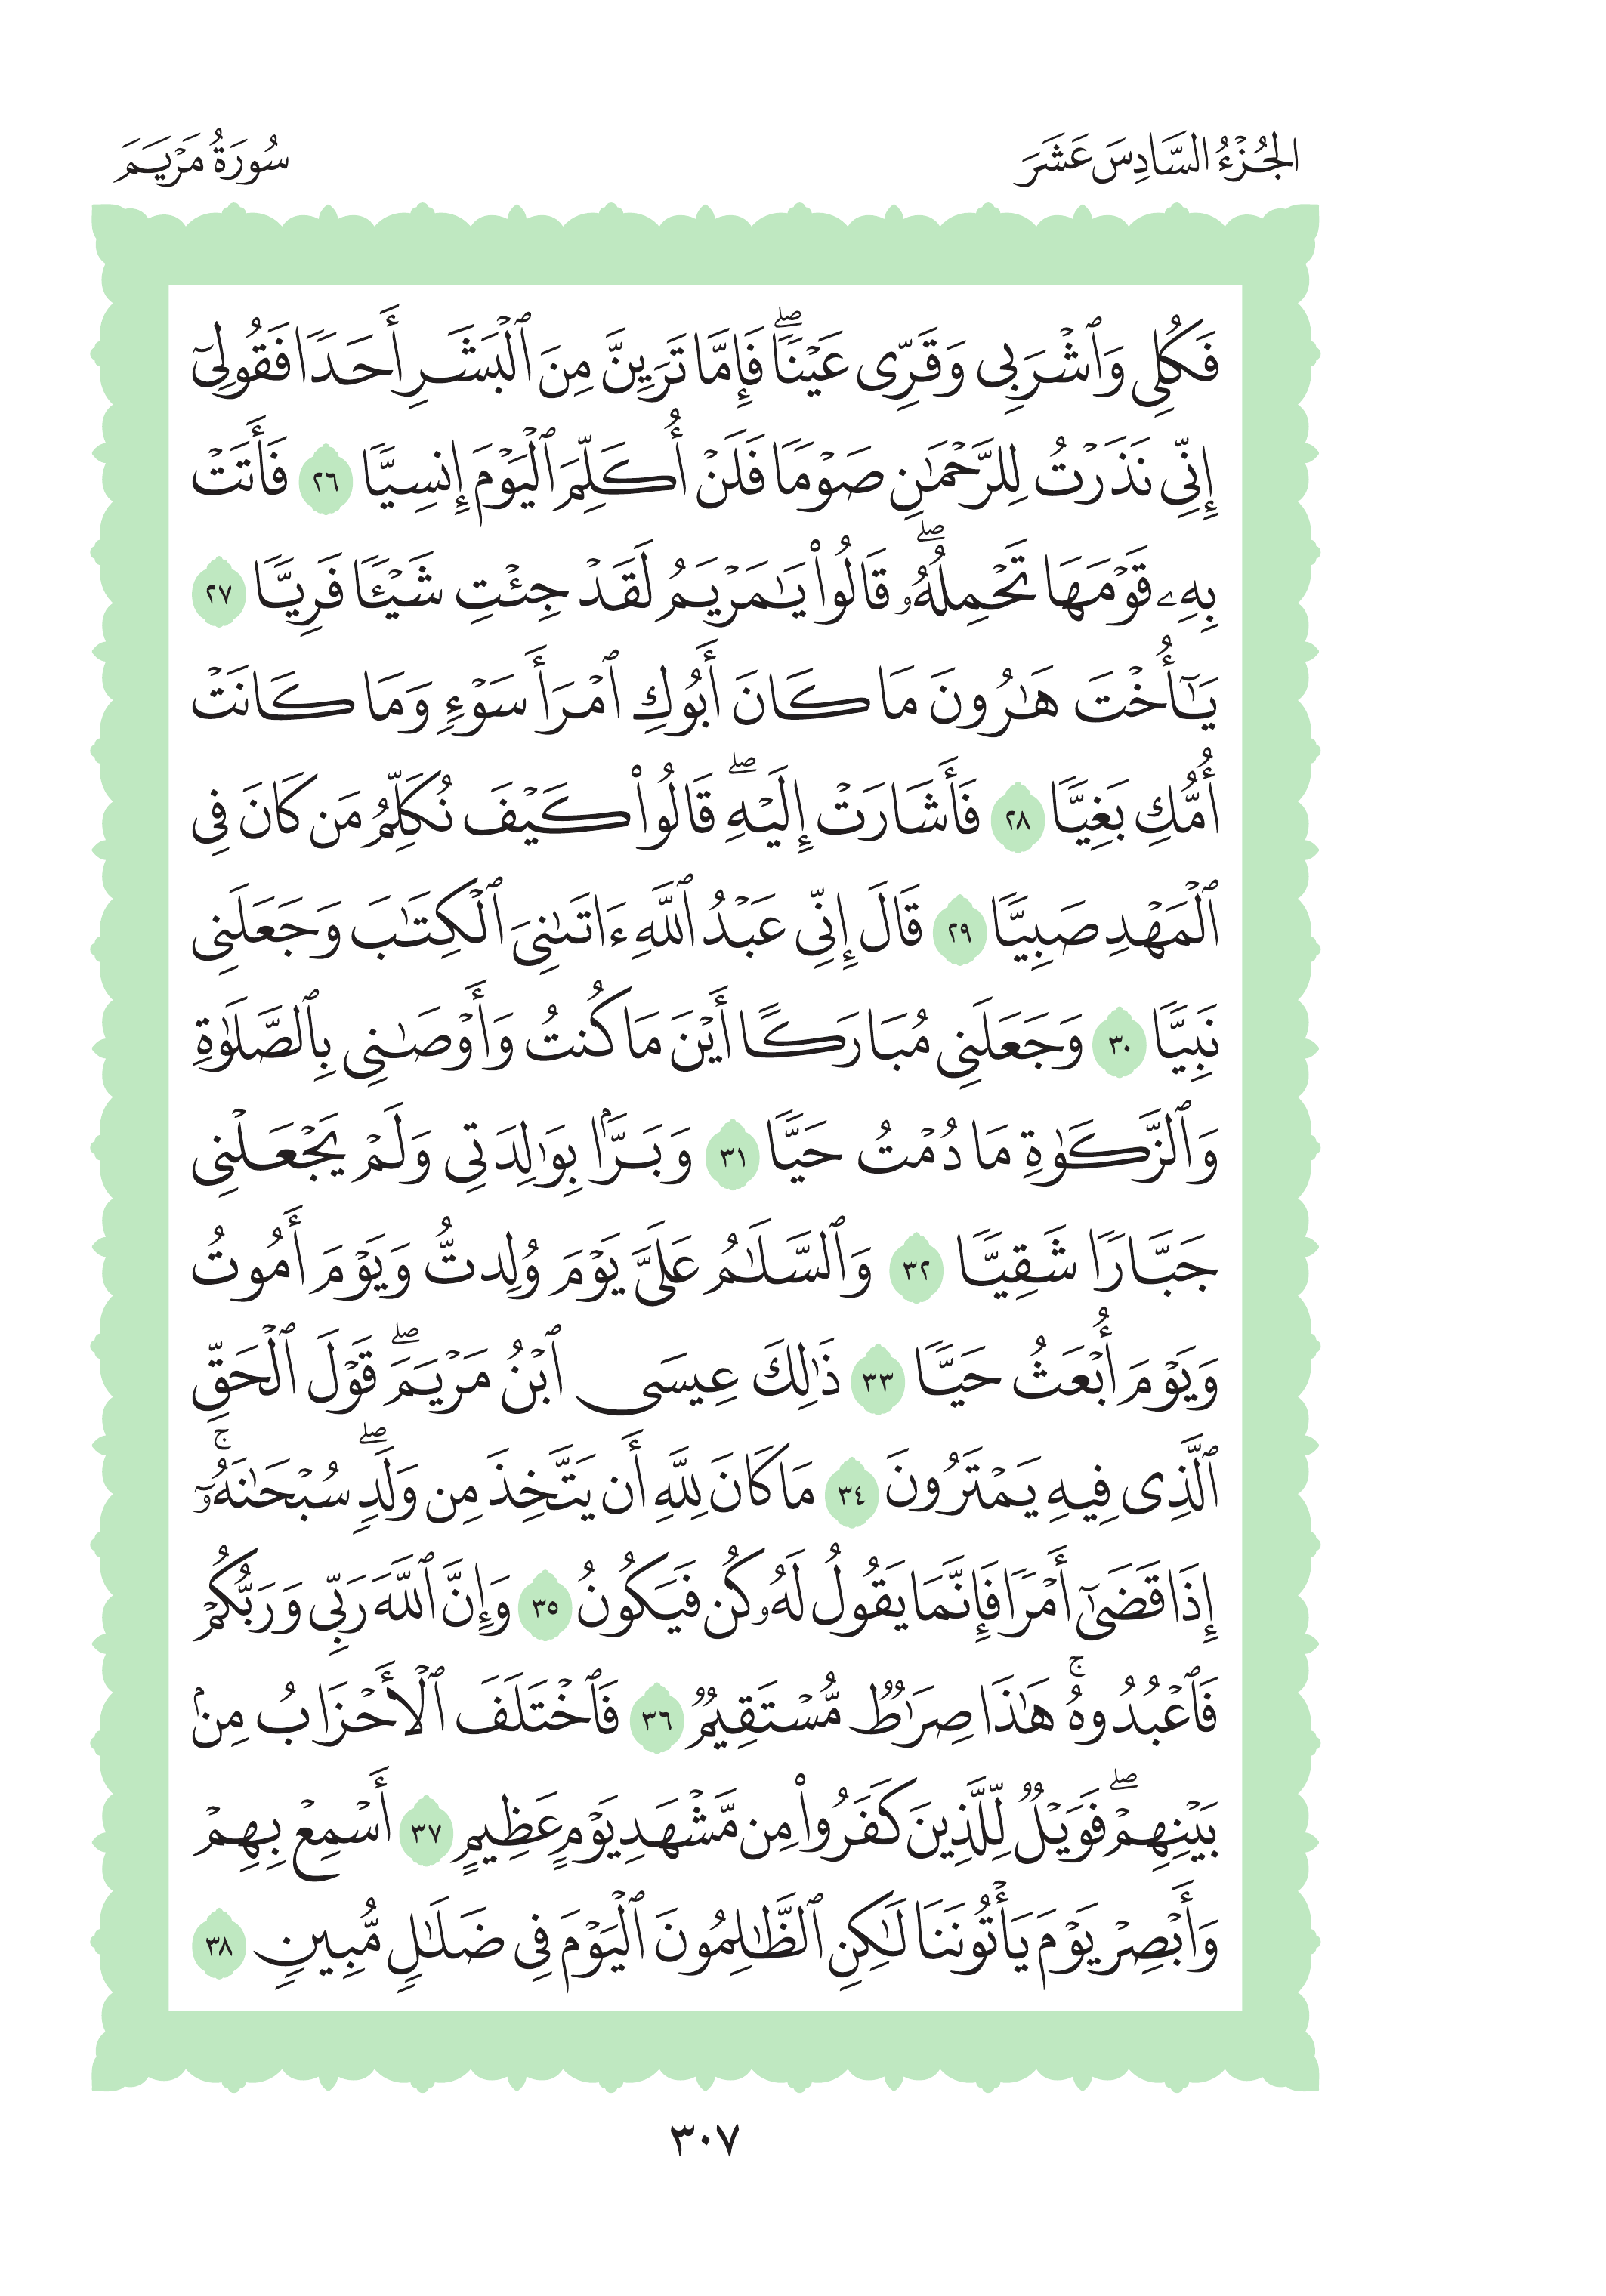 الجُزۡءُ السَّادِسَ عَشَرَ
سُورَةُ مَرۡيَمَ
فَكُلِي وَٱشۡرَبِي وَقَرِّي عَيۡنٗاۖ فَإِمَّا تَرَيِنَّ مِنَ ٱلۡبَشَرِ أَحَدٗا فَقُولِيٓ
إِنِّي نَذَرۡتُ لِلرَّحۡمَٰنِ صَوۡمٗا فَلَنۡ أُكَلِّمَ ٱلۡيَوۡمَ إِنسِيّٗا ٢٦ فَأَتَتۡ
بِهِۦ قَوۡمَهَا تَحۡمِلُهُۥۖ قَالُواْ يَٰمَرۡيَمُ لَقَدۡ جِئۡتِ شَيۡـٔٗا فَرِيّٗا ٢٧
يَٰٓأُخۡتَ هَٰرُونَ مَا كَانَ أَبُوكِ ٱمۡرَأَ سَوۡءٖ وَمَا كَانَتۡ
أُمُّكِ بَغِيّٗا ٢٨ فَأَشَارَتۡ إِلَيۡهِۖ قَالُواْ كَيۡفَ نُكَلِّمُ مَن كَانَ فِي
ٱلۡمَهۡدِ صَبِيّٗا ٢٩ قَالَ إِنِّي عَبۡدُ ٱللَّهِ ءَاتَىٰنِيَ ٱلۡكِتَٰبَ وَجَعَلَنِي
نَبِيّٗا ٣٠ وَجَعَلَنِي مُبَارَكًا أَيۡنَ مَا كُنتُ وَأَوۡصَٰنِي بِٱلصَّلَوٰةِ
وَٱلزَّكَوٰةِ مَا دُمۡتُ حَيّٗا ٣١ وَبَرَّۢا بِوَٰلِدَتِي وَلَمۡ يَجۡعَلۡنِي
جَبَّارٗا شَقِيّٗا ٣٢ وَٱلسَّلَٰمُ عَلَيَّ يَوۡمَ وُلِدتُّ وَيَوۡمَ أَمُوتُ
وَيَوۡمَ أُبۡعَثُ حَيّٗا ٣٣ ذَٰلِكَ عِيسَى ٱبۡنُ مَرۡيَمَۖ قَوۡلَ ٱلۡحَقِّ
ٱلَّذِي فِيهِ يَمۡتَرُونَ ٣٤ مَا كَانَ لِلَّهِ أَن يَتَّخِذَ مِن وَلَدٖۖ سُبۡحَٰنَهُۥٓۚ
إِذَا قَضَىٰٓ أَمۡرٗا فَإِنَّمَا يَقُولُ لَهُۥ كُن فَيَكُونُ ٣٥ وَإِنَّ ٱللَّهَ رَبِّي وَرَبُّكُمۡ
فَٱعۡبُدُوهُۚ هَٰذَا صِرَٰطٞ مُّسۡتَقِيمٞ ٣٦ فَٱخۡتَلَفَ ٱلۡأَحۡزَابُ مِنۢ
بَيۡنِهِمۡۖ فَوَيۡلٞ لِّلَّذِينَ كَفَرُواْ مِن مَّشۡهَدِ يَوۡمٍ عَظِيمٍ ٣٧ أَسۡمِعۡ بِهِمۡ
وَأَبۡصِرۡ يَوۡمَ يَأۡتُونَنَا لَٰكِنِ ٱلظَّٰلِمُونَ ٱلۡيَوۡمَ فِي ضَلَٰلٖ مُّبِينٖ ٣٨
٣٠٧